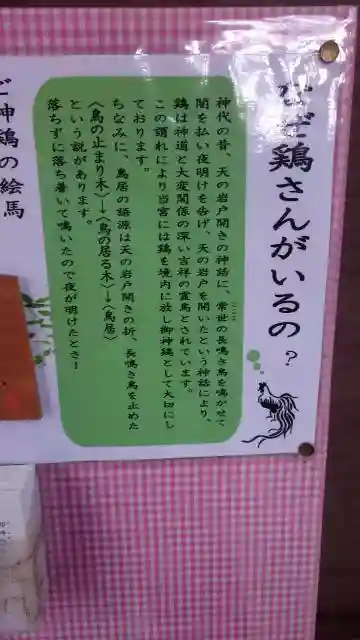 なぜ鶏さんがいるの？
神代の昔、天の岩戸開きの神話に、常世の長鳴き鳥を鳴かせて
闇を払い夜明けを告げ、天の岩戸を開いたという神話により、
鶏は神道と大変関係の深い吉祥の霊鳥とされています。
この謂れにより当宮には鶏を境内に放し御神鶏として大切にし
ております。
ちなみに、鳥居の語源は天の岩戸開きの折、長鳴き鳥を止めた
〈鳥の止まり木〉→〈鳥の居る木〉→〈鳥居〉
という説があります。
落ちずに落ち着いて鳴いたので夜が明けたとさ！
ご神鶏の絵馬